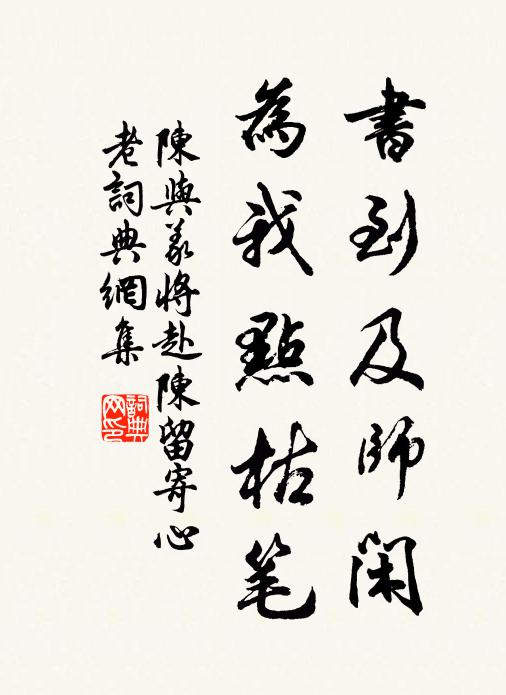 書到及師閑
為我點枯笔
陳與義將赴陳留寄心
老詞典網集
詞典
网印